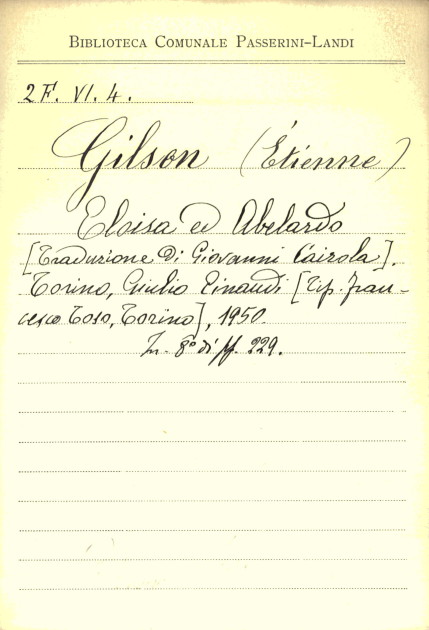 BIBLIOTECA COMUNALE PASSERINI-LANDI
2 F. VI. 4.
Gilson (Étienne)
Eloisa ed Abelardo
[Traduzione di Giovanni Cairola].
Torino, Giulio Einaudi [Tip. Fran-
cesco Toso, Torino], 1950.
In - 8° di pp. 229.